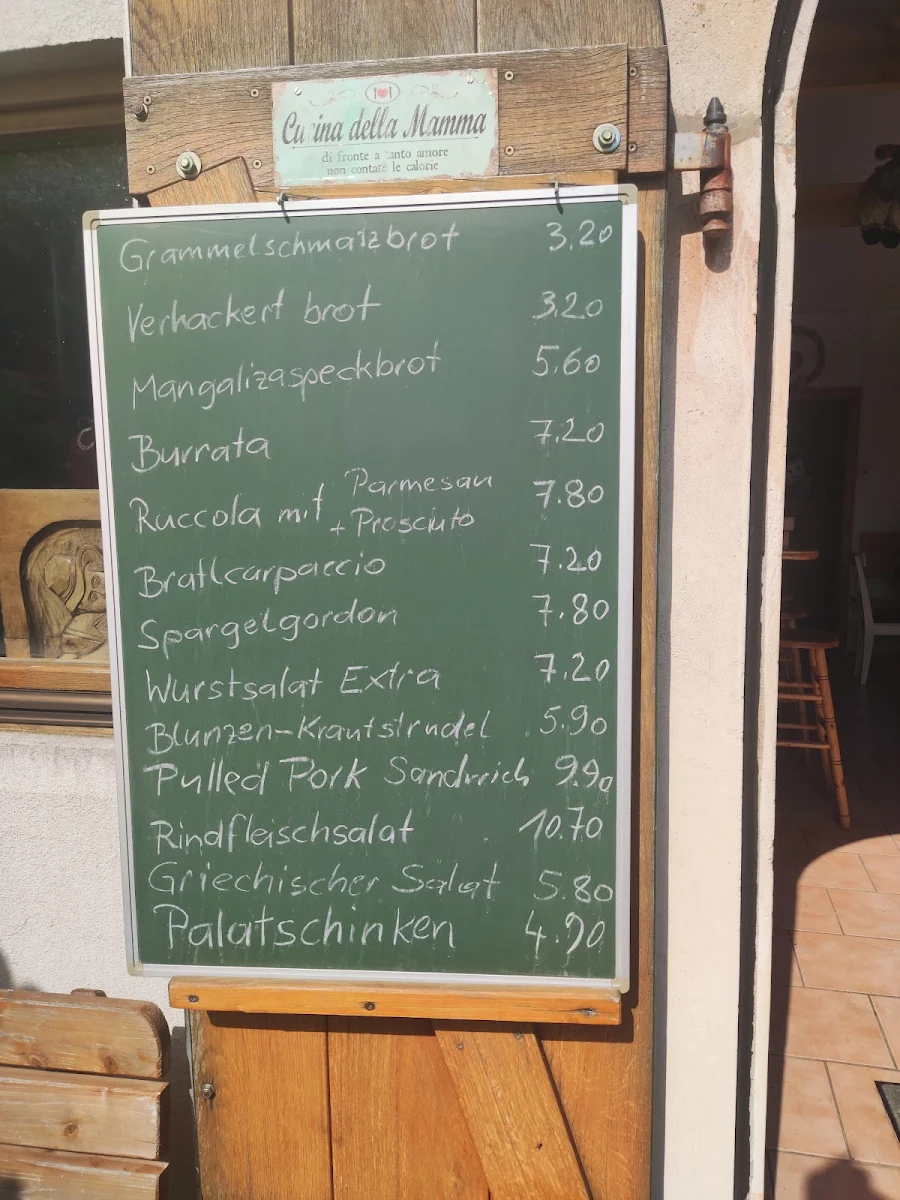 Cucina della Mamma
di fronte a tanto amore
non contate le calorie
Grammelschmalzbrot 3.20
Verhackert brot 3.20
Mangalizaspeckbrot 5.60
Burrata 7.20
Ruccola mit Parmesan + Prosciuto 7.80
Bratlcarpaccio 7.20
Spargelgordon 7.80
Wurstsalat Extra 7.20
Blunzen-Krautstrudel 5.90
Pulled Pork Sandwich 9.90
Rindfleischsalat 10.70
Griechischer Salat 5.80
Palatschinken 4.90